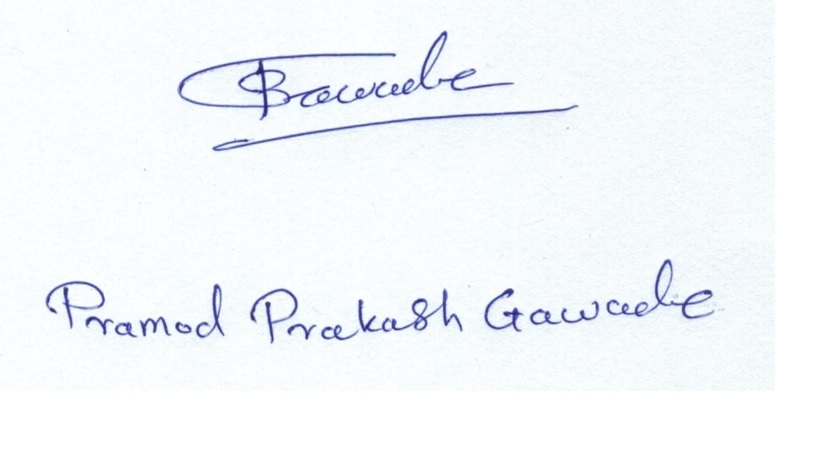 Gawade
Pramod Prakash Gawade